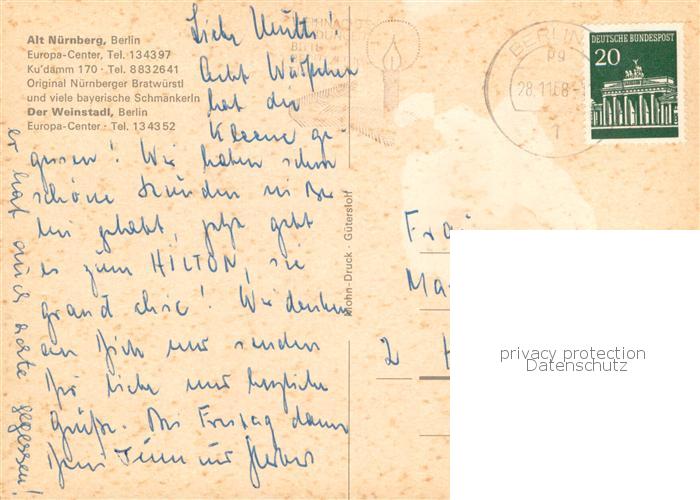 Alt Nürnberg, Berlin
Europa-Center, Tel. 134397
Ku'damm 170 · Tel. 8832641
Original Nürnberger Bratwürstl
und viele bayerische Schmankerln
Der Weinstadl, Berlin
Europa-Center · Tel. 134352
Liebe Mutti!
Acht Würstchen
hat die
Kleene ge-
gessen! Wir haben schon
schöne Stunden in Ber-
lin gehabt, jetzt geht
es zum HILTON, die
grand chic! Wir denken
an Dich und senden
Dir liebe und herzliche
Grüße. Bis Freitag dann
Dein und Herbert
er hat auch achte gegessen!
Mohn-Druck · Gütersloh
BERLIN
28.11.68
1
DEUTSCHE BUNDESPOST
20
Frau
Ma
2 H
privacy protection
Datenschutz